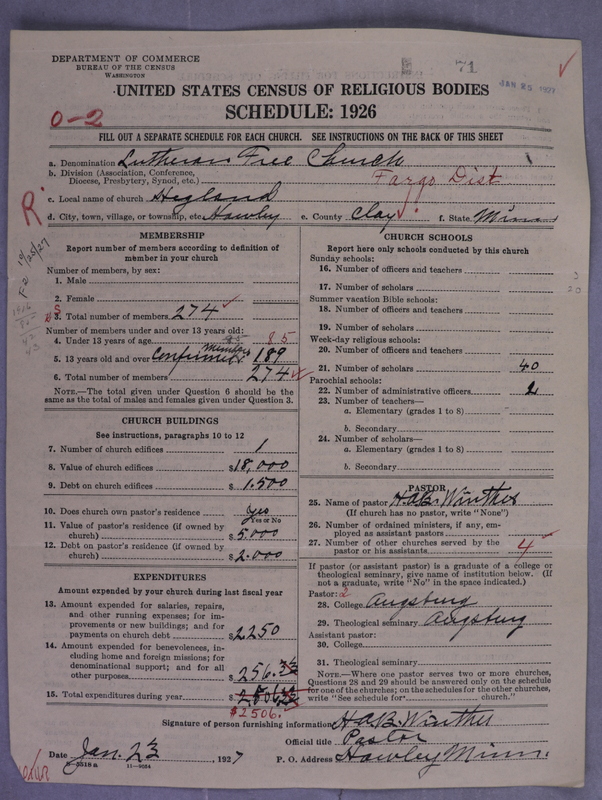 71
JAN 25 1927
DEPARTMENT OF COMMERCE
BUREAU OF THE CENSUS
WASHINGTON
UNITED STATES CENSUS OF RELIGIOUS BODIES
SCHEDULE: 1926
0-2
FILL OUT A SEPARATE SCHEDULE FOR EACH CHURCH. SEE INSTRUCTIONS ON THE BACK OF THIS SHEET
a. Denomination Lutheran Free Church
b. Division (Association, Conference,
Diocese, Presbytery, Synod, etc.) Fargo Dist
c. Local name of church Hegland
d. City, town, village, or township, etc. Hawley e. County Clay f. State Minn
R
MEMBERSHIP
Report number of members according to definition of
member in your church
Number of members, by sex:
1. Male
2. Female
3. Total number of members 274
Number of members under and over 13 years old:
4. Under 13 years of age 85 85
5. 13 years old and over Confirmed Members 189
6. Total number of members 274
NOTE.—The total given under Question 6 should be the
same as the total of males and females given under Question 3.
CHURCH BUILDINGS
See instructions, paragraphs 10 to 12
7. Number of church edifices 1
8. Value of church edifices $18,000
9. Debt on church edifices $1.500
10. Does church own pastor's residence Yes
Yes or No
11. Value of pastor's residence (if owned by
church) $5.000
12. Debt on pastor's residence (if owned by
church) $2.000
EXPENDITURES
Amount expended by your church during last fiscal year
13. Amount expended for salaries, repairs,
and other running expenses; for im-
provements or new buildings; and for
payments on church debt $2250
14. Amount expended for benevolences, in-
cluding home and foreign missions; for
denominational support; and for all
other purposes $256.33
15. Total expenditures during year $2506.33
$2506.
CHURCH SCHOOLS
Report here only schools conducted by this church
Sunday schools:
16. Number of officers and teachers
17. Number of scholars
Summer vacation Bible schools:
18. Number of officers and teachers
19. Number of scholars
Week-day religious schools:
20. Number of officers and teachers
21. Number of scholars 40
Parochial schools:
22. Number of administrative officers 2
23. Number of teachers—
a. Elementary (grades 1 to 8)
b. Secondary
24. Number of scholars—
a. Elementary (grades 1 to 8)
b. Secondary
PASTOR
25. Name of pastor H.A.B. Winther
(If church has no pastor, write "None")
26. Number of ordained ministers, if any, em-
ployed as assistant pastors
27. Number of other churches served by the
pastor or his assistants 4
If pastor (or assistant pastor) is a graduate of a college or
theological seminary, give name of institution below. (If
not a graduate, write "No" in the space indicated.)
Pastor: 2
28. College Augsburg
29. Theological seminary Augsburg
Assistant pastor:
30. College
31. Theological seminary
NOTE.—Where one pastor serves two or more churches,
Questions 28 and 29 should be answered only on the schedule
for one of the churches; on the schedules for the other churches,
write "See schedule for church."
Signature of person furnishing information H.A.B. Winther
Official title Pastor
Date Jan. 23, 1927 P. O. Address Hawley Minn.
11-9034